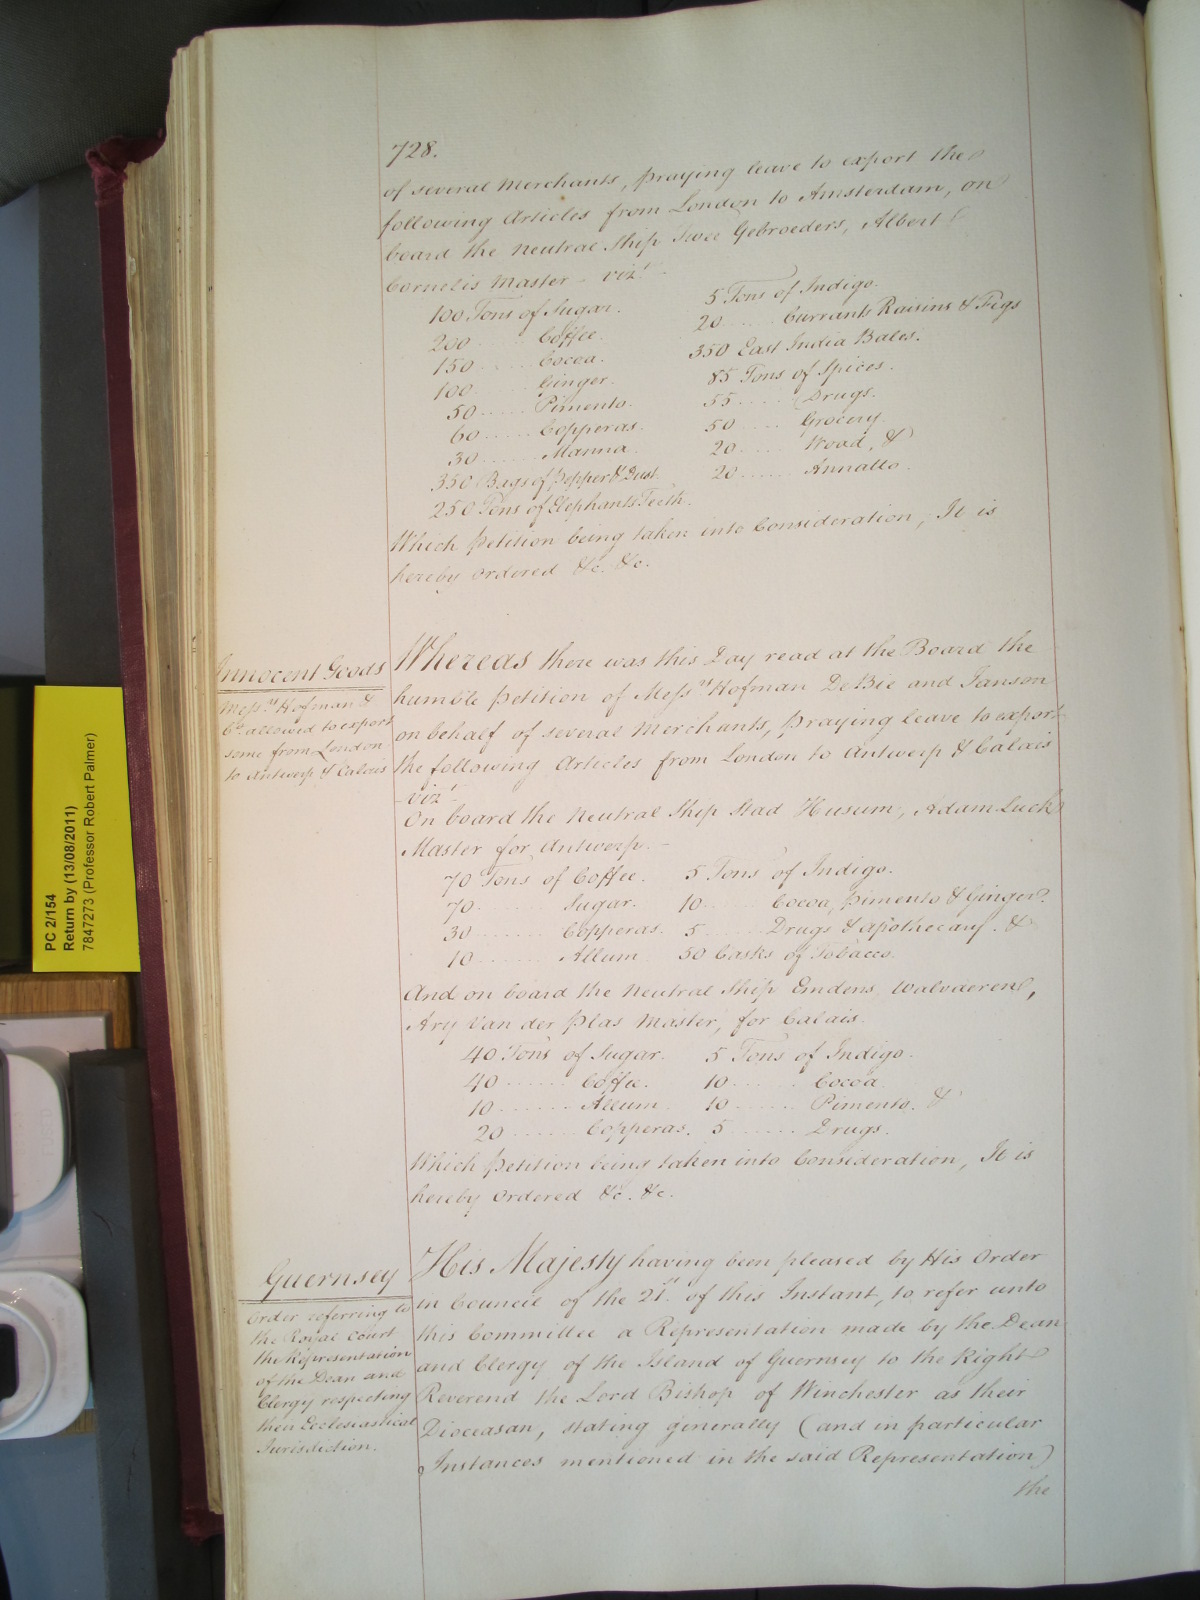 728.
of several Merchants, praying leave to export the
following Articles from London to Amsterdam, on
board the Neutral Ship Twee Gebroeders, Albert
Cornelis Master - viz.t -
100 Tons of Sugar. 5 Tons of Indigo.
200 ..... Coffee. 20 ..... Currants Raisins & Figs
150 ..... Cocoa. 350 East India Bales.
100 ..... Ginger. 85 Tons of Spices.
50 ..... Pimento. 55 ..... Drugs.
60 ..... Copperas. 50 ..... Grocery
30 ..... Manna. 20 ..... Woad, &
350 Bags of Pepper & Dust. 20 ..... Annatto.
250 Tons of Elephants Teeth.
Which Petition being taken into Consideration, It is
hereby Ordered &c. &c.
Innocent Goods
Mess.rs Hofman &
Co. allowed to export
some from London
to Antwerp & Calais
Whereas there was this Day read at the Board the
humble Petition of Mess.rs Hofman De Bie and Janson
on behalf of several Merchants, praying leave to export
the following Articles from London to Antwerp & Calais
- viz.t -
On board the Neutral Ship Stad Husum, Adam Luck
Master for Antwerp. -
70 Tons of Coffee. 5 Tons of Indigo.
70 ..... Sugar. 10 ..... Cocoa, Pimento & Ginger.
30 ..... Copperas. 5 ..... Drugs & Apothecary. &
10 ..... Allum 50 Casks of Tobacco.
And on board the Neutral Ship Emdens Walvaeren,
Ary Van der Plas Master, for Calais.
40 Tons of Sugar. 5 Tons of Indigo.
40 ..... Coffee. 10 ..... Cocoa
10 ..... Allum 10 ..... Pimento. &
20 ..... Copperas. 5 ..... Drugs.
Which Petition being taken into Consideration, It is
hereby Ordered &c. &c.
Guernsey
Order referring to
the Royal Court
the Representation
of the Dean and
Clergy respecting
their Ecclesiastical
Jurisdiction.
His Majesty having been pleased by His Order
in Council of the 21.st of this Instant, to refer unto
this Committee a Representation made by the Dean
and Clergy of the Island of Guernsey to the Right
Reverend the Lord Bishop of Winchester as their
Dioceasan, stating generally (and in particular
Instances mentioned in the said Representation)
the
PC 2/154
Return by (13/08/2011)
7847273 (Professor Robert Palmer)